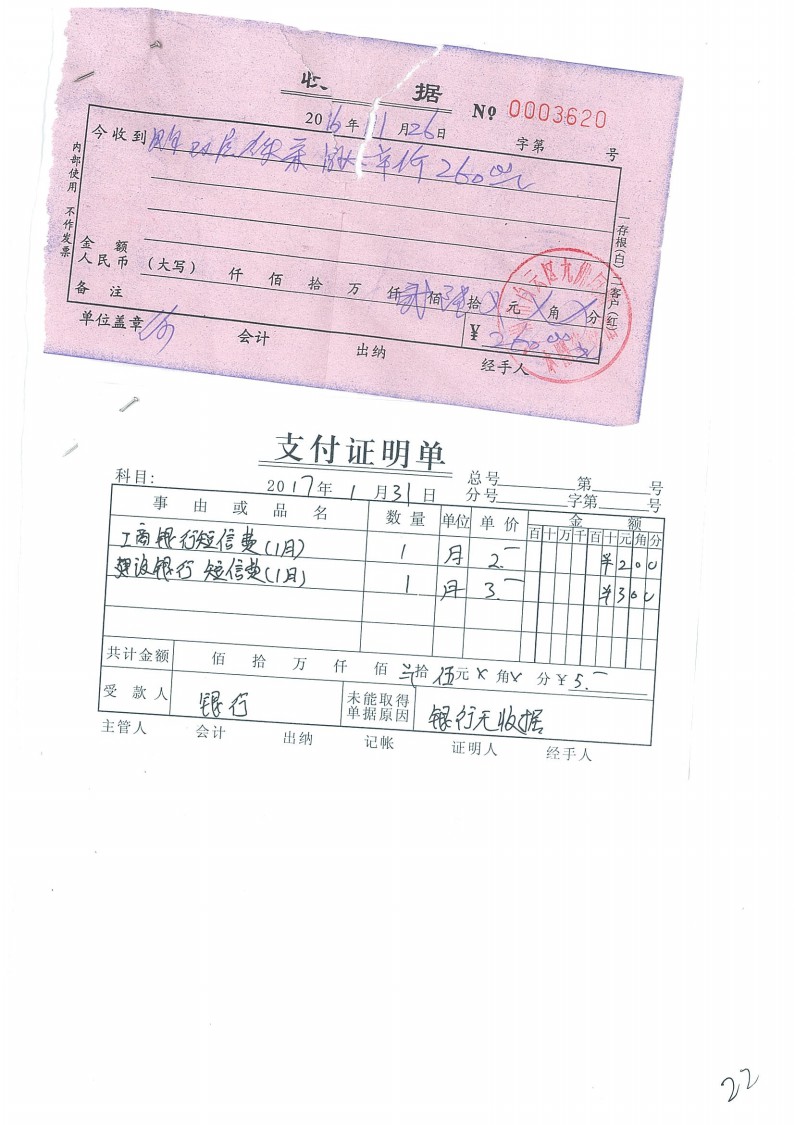 收 据
№ 0003620
2016年11月26日
字第 号
今收到 单价260元
内部使用 不作发票
金额
人民币 (大写) 仟 佰 拾 万 仟 贰佰 陆拾 元 角 分
¥ 260.00
备注
一存根(白) 二客户(红)
单位盖章 会计 出纳 经手人
支付证明单
科目: 2017年1月31日
总号 第 号
分号 字第 号
事由或品名 数量 单位 单价 金额
百十万千百十元角分
工商银行短信费(1月) 1 月 2.— ¥200
建设银行短信费(1月) 1 月 3.— ¥300
共计金额 佰 拾 万 仟 佰 拾 伍元 × 角 × 分 ¥ 5.—
受款人 银行 未能取得单据原因 银行无收据
主管人 会计 出纳 记帐 证明人 经手人
22